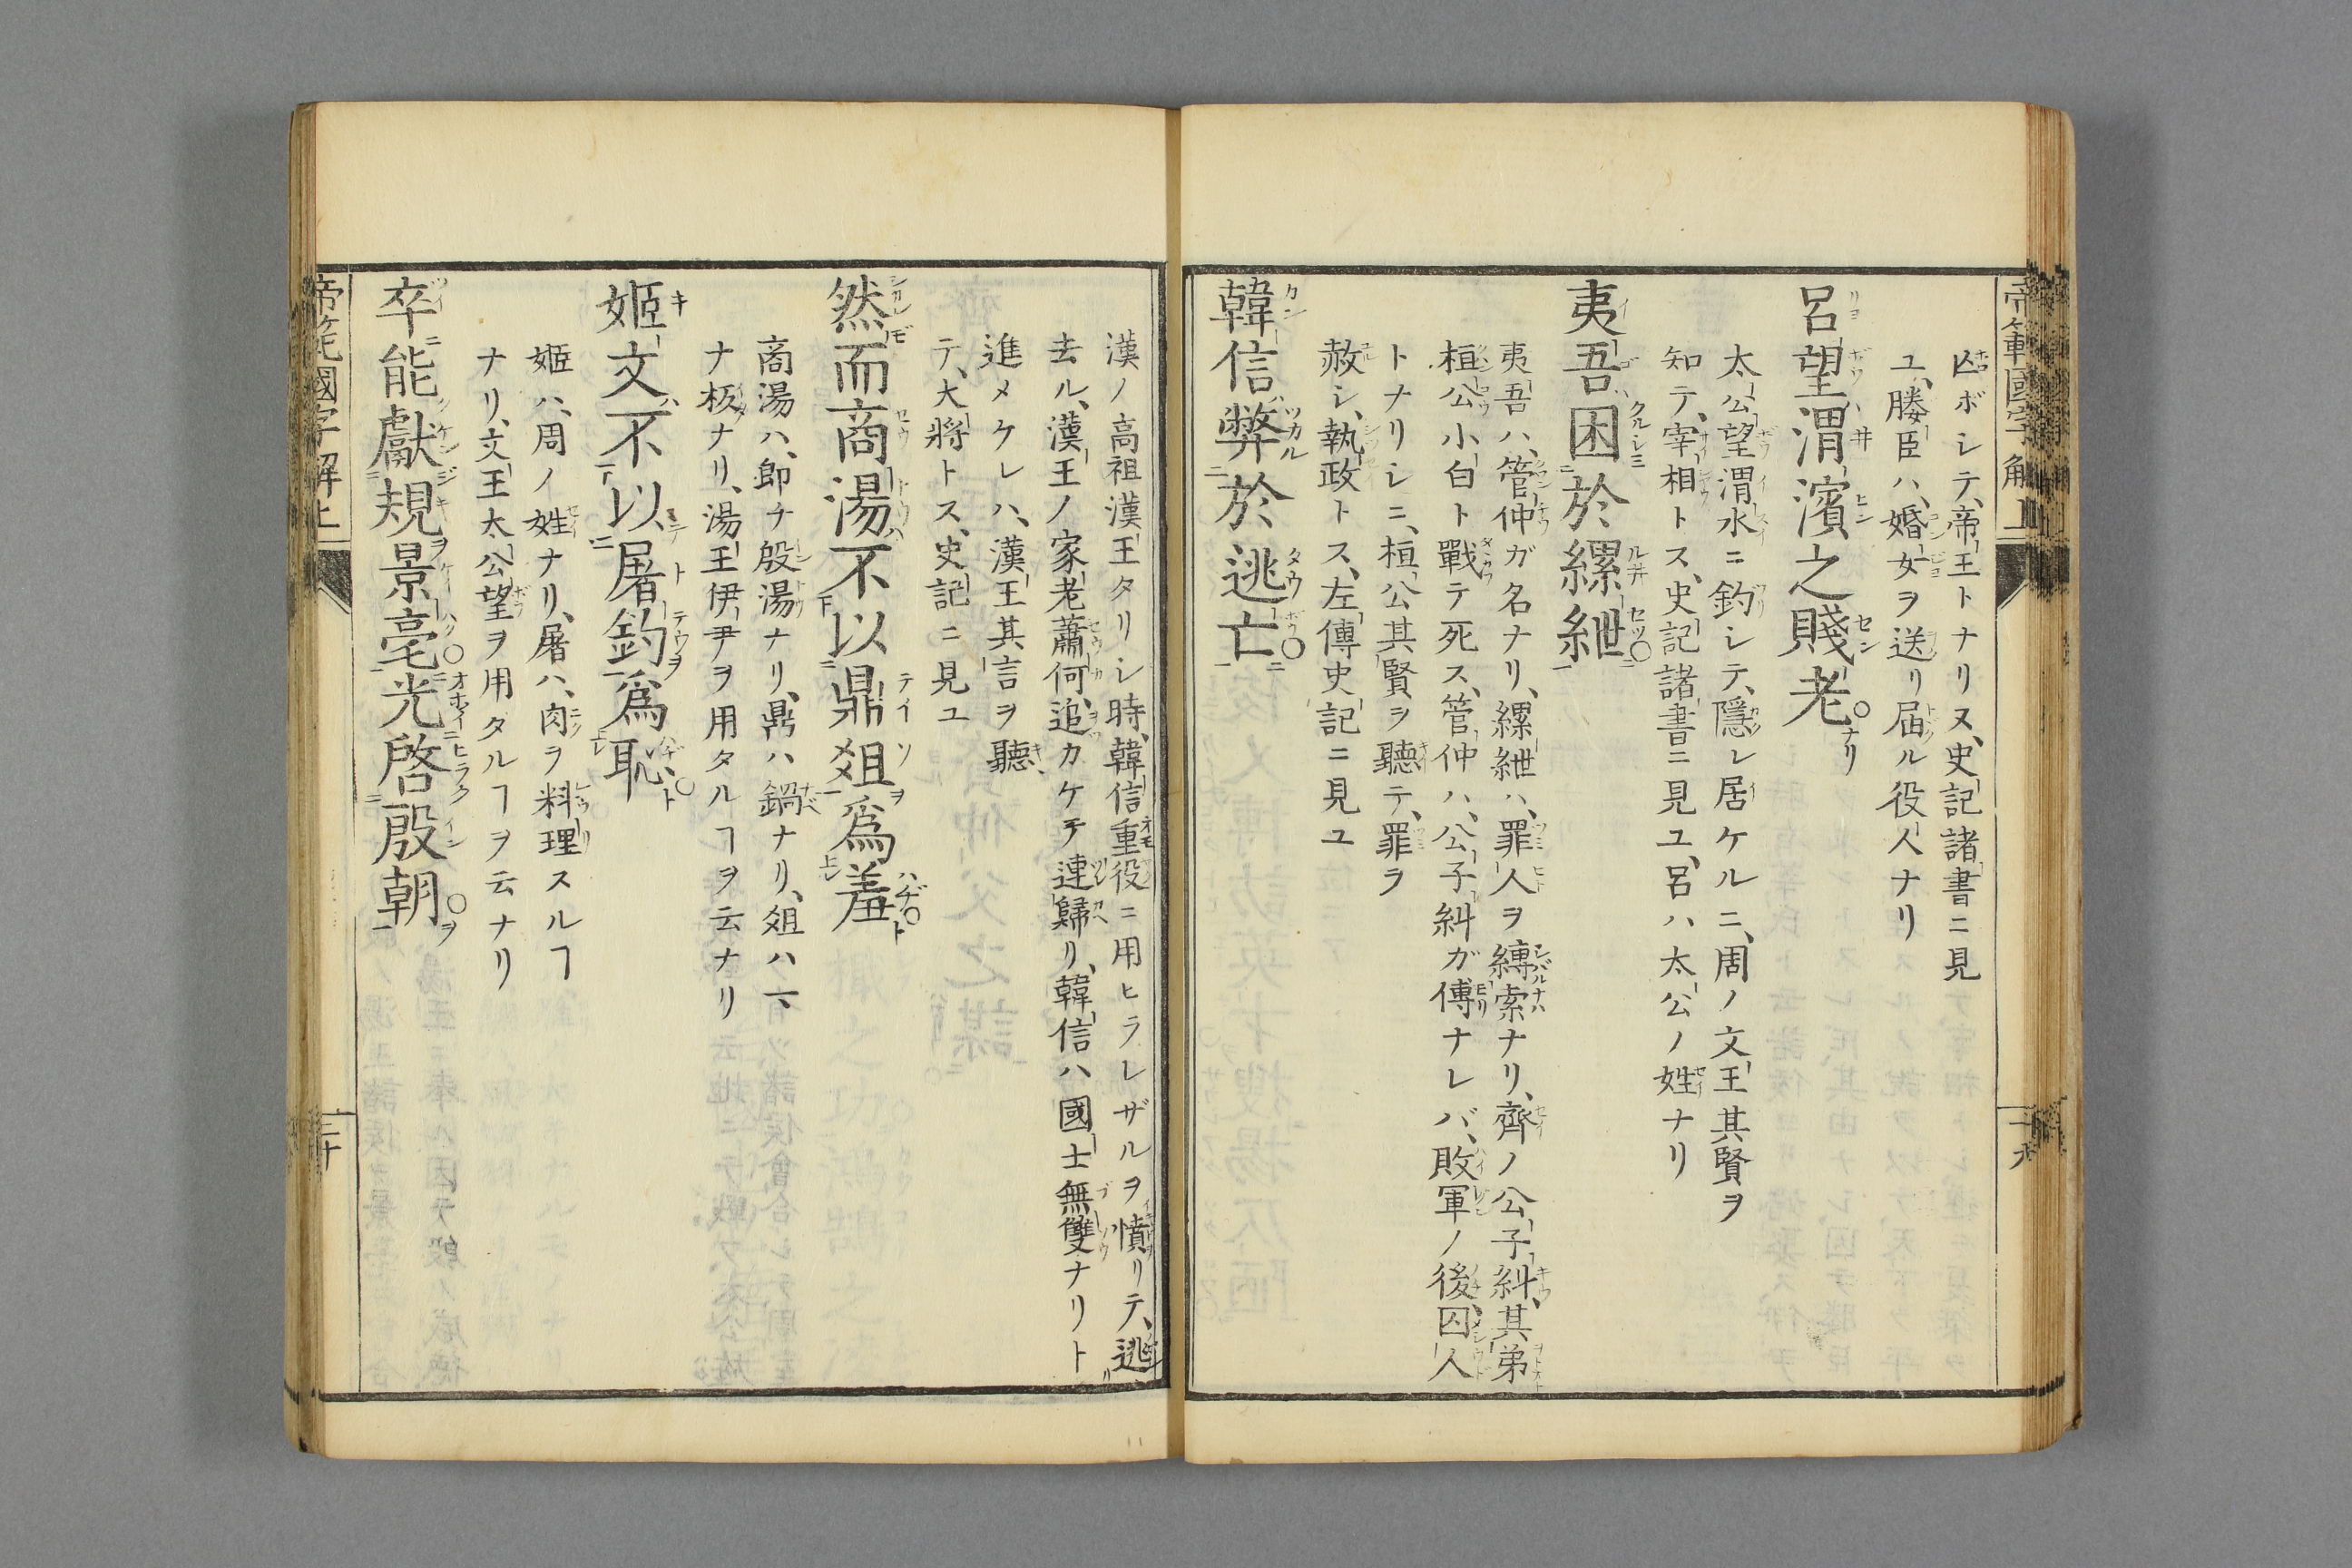 帝範國字解上
ボシテ、帝王トナリヌ、史記諸書ニ見
ユ、媵臣ハ、婚女ヲ送リ届ル役人ナリ
呂望渭濱之賤老
太公望渭水ニ釣シテ、隠レ居ケルニ、周ノ文王其賢ヲ
知テ、宰相トス、史記諸書ニ見ユ、呂ハ太公ノ姓ナリ
夷吾困於縲紲
夷吾ハ、管仲ガ名ナリ、縲紲ハ、罪人ヲ縛索ナリ、齊ノ公子糾、其弟
桓公小白ト戰テ死ス、管仲ハ、公子糾ガ傅ナレバ、敗軍ノ後、囚人
トナリシニ、桓公其賢ヲ聽テ、罪ヲ
赦シ、執政トス、左傳史記ニ見ユ
韓信弊於逃亡
漢ノ高祖漢王タリシ時、韓信重役ニ用ヒラレザルヲ憤リテ、逃
去ル、漢王ノ家老蕭何、追カケテ連歸リ、韓信ハ國士無雙ナリト
進メケレハ、漢王其言ヲ聽
テ、大將トス、史記ニ見ユ
然而商湯不以鼎俎爲羞
商湯ハ、即チ殷湯ナリ、鼎ハ鍋ナリ、俎ハマ
ナ板ナリ、湯王伊尹ヲ用タルヿヲ云ナリ
姬文不以屠釣爲恥
姬ハ、周ノ姓ナリ、屠ハ、肉ヲ料理スルヿ
ナリ、文王太公望ヲ用タルヿヲ云ナリ
卒能獻規景亳光啓殷朝
帝範國字解上
二十